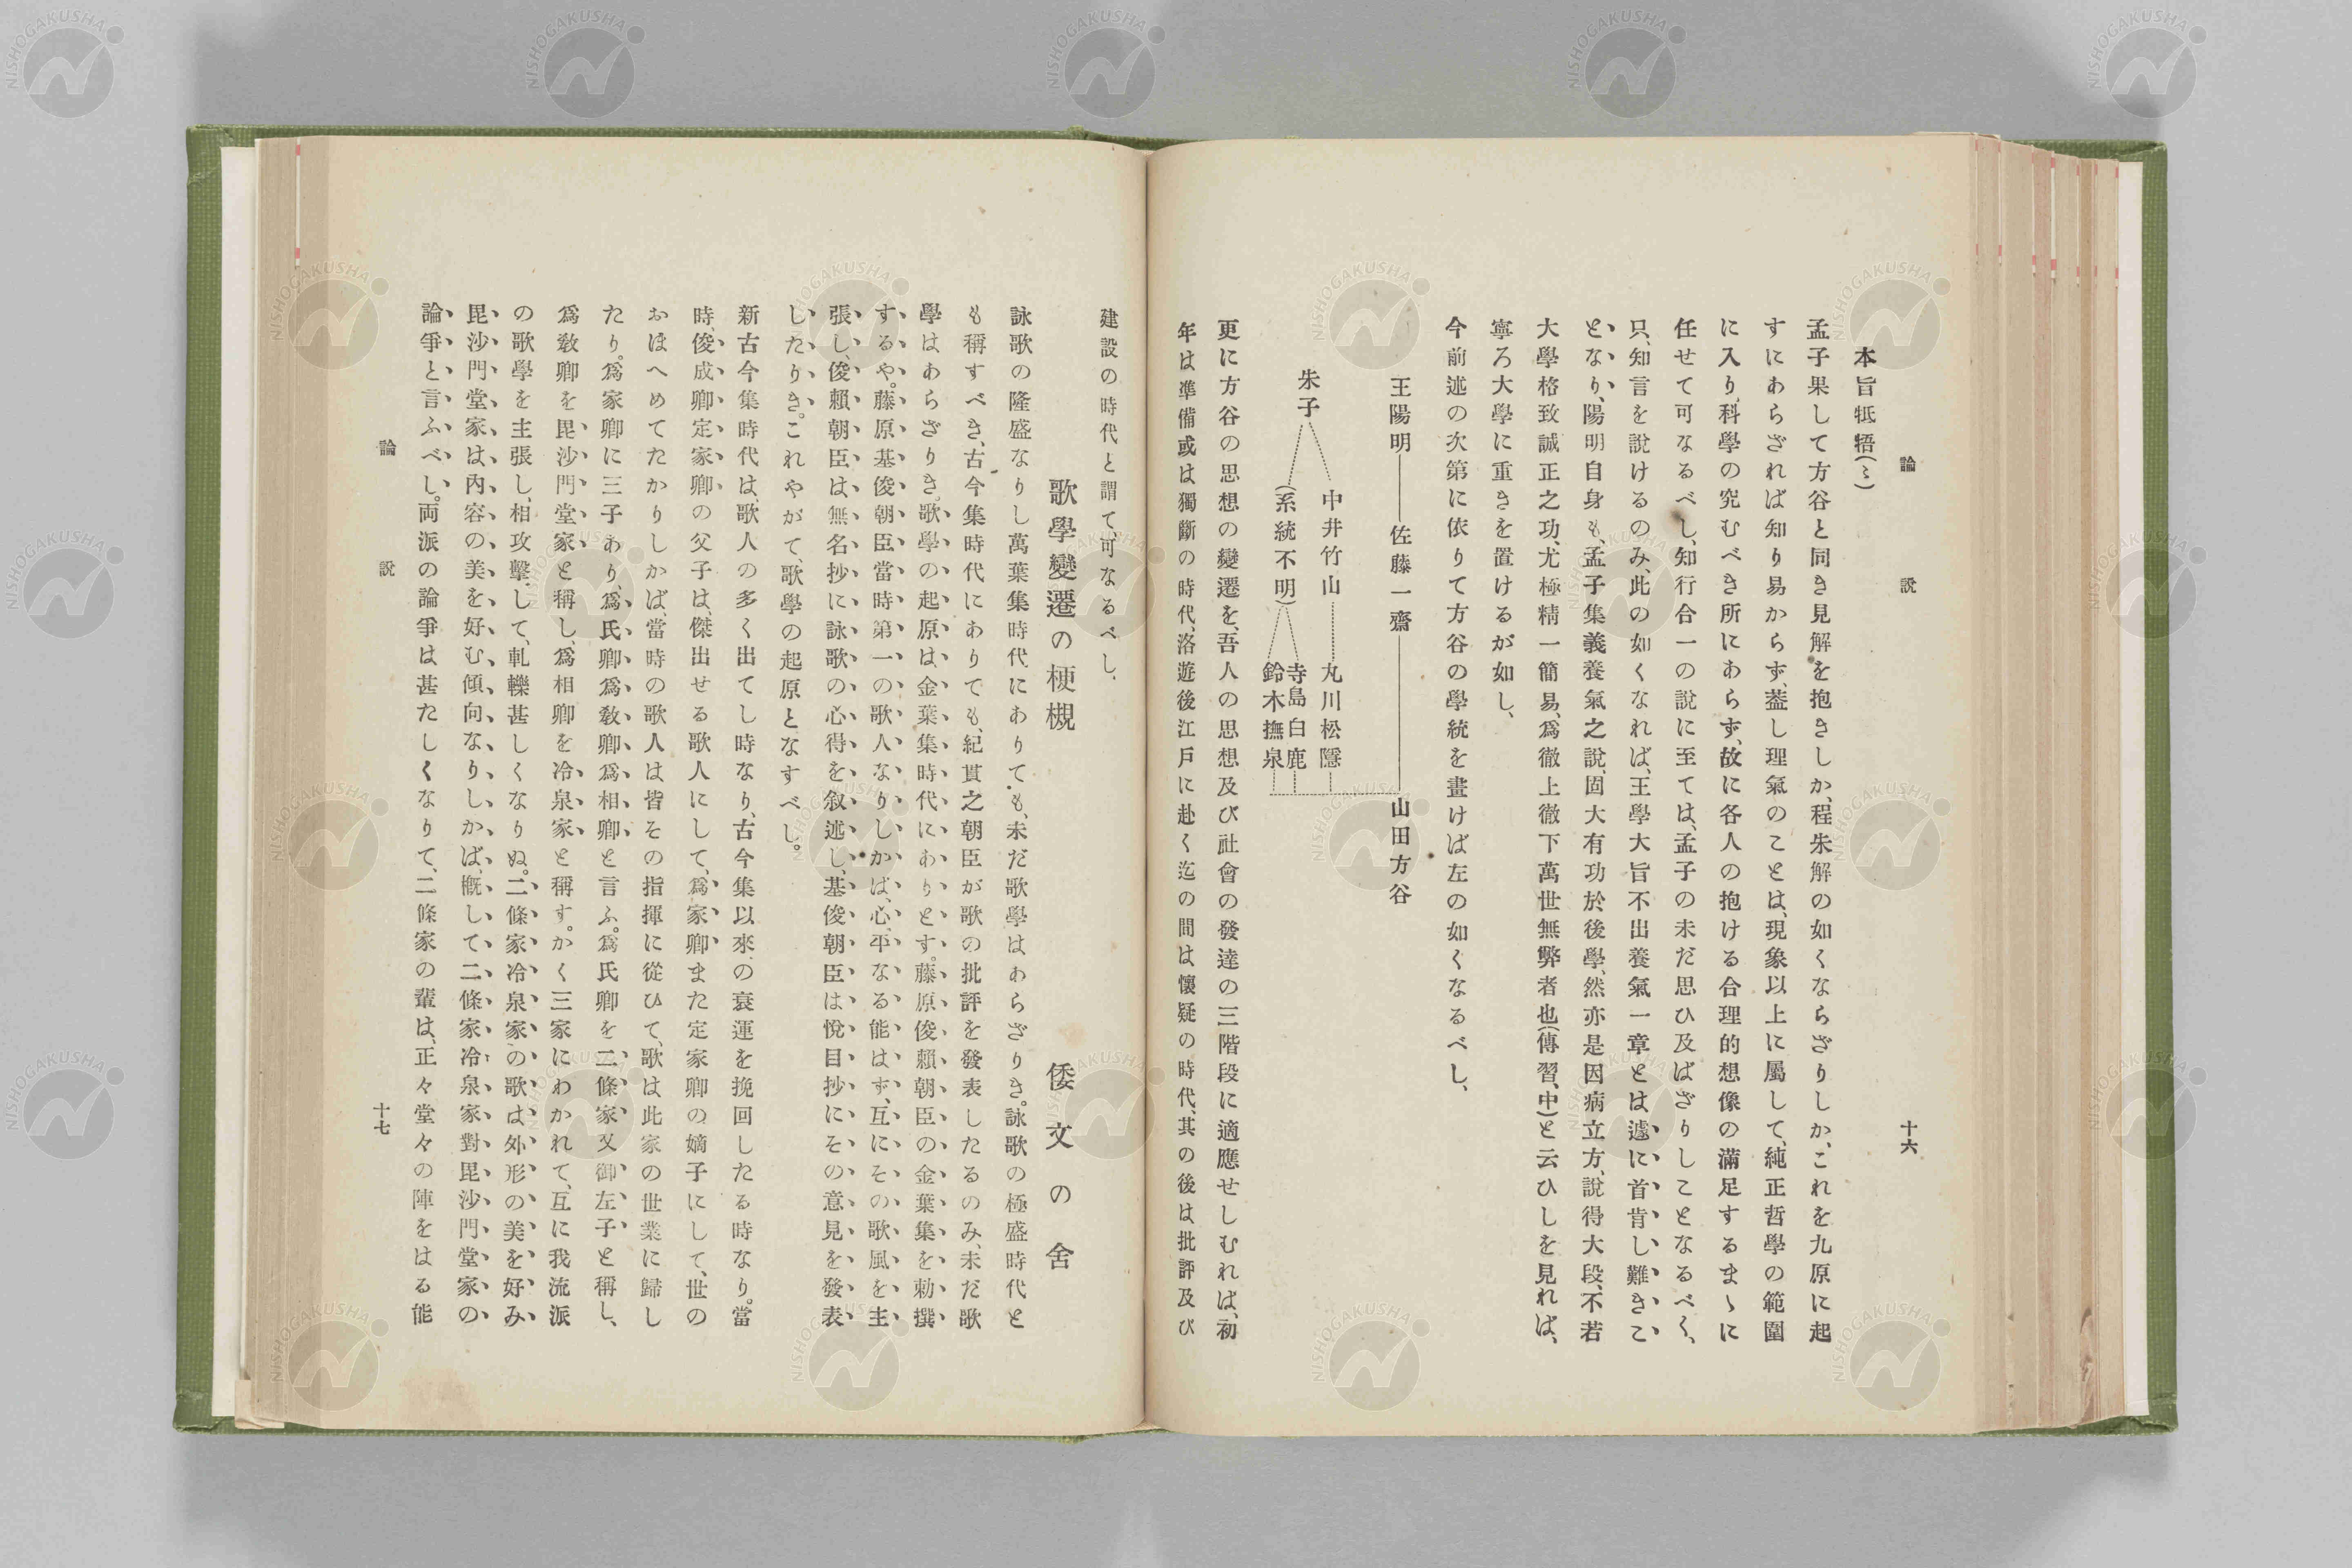 論說
十六
本旨牴牾(ミ)
孟子果して方谷と同き見解を抱きしか、程朱解の如くならざりしか、これを九原に起
すにあらざれば知り易からず、蓋し理氣のことは、現象以上に屬して、純正哲學の範圍
に入り、科學の究むべき所にあらず、故に各人の抱ける合理的想像の滿足するまゝに
任せて可なるべし、知行合一の說に至ては、孟子の未だ思ひ及ばざりしことなるべく、
只、知言を說けるのみ、此の如くなれば、王學大旨不出養氣一章とは遽に首肯し難きこ
となり、陽明自身も、孟子集義養氣之說、固大有功於後學、然亦是因病立方、說得大段、不若
大學格致誠正之功、尤極精一簡易、爲徹上徹下萬世無弊者也(傳習、中)と云ひしを見れば、
寧ろ大學に重きを置けるが如し、
今前述の次第に依りて方谷の學統を畫けば左の如くなるべし、
王陽明――佐藤一齋――山田方谷
朱子
中井竹山
丸川松隱
(系統不明)
寺島白鹿
鈴木撫泉
更に方谷の思想の變遷を、吾人の思想及び社會の發達の三階段に適應せしむれば、初
年は準備或は獨斷の時代、洛遊後江戶に赴く迄の間は懷疑の時代、其の後は批評及び
建設の時代と謂て、可なるべし、
歌學變遷の梗槪
倭文の舍
詠歌の隆盛なりし萬葉集時代にありても、未だ歌學はあらざりき。詠歌の極盛時代と
も稱すべき、古今集時代にありても、紀貫之朝臣が歌の批評を發表したるのみ、未だ歌
學はあらざりき。歌學の起原は、金葉集時代にありとす。藤原俊賴朝臣の金葉集を勅撰
するや。藤原基俊朝臣當時第一の歌人なりしかば、心平なる能はず、互にその歌風を主
張し、俊賴朝臣は、無名抄に、詠歌の心得を叙述し、基俊朝臣は悅目抄にその意見を發表
したりき。これやがて、歌學の起原となすべし。
新古今集時代は、歌人の多く出てし時なり、古今集以來、の衰運を挽回したる時なり。當
時、俊成卿定家卿の父子は、傑出せる歌人にして、爲家卿また定家卿の嫡子にして、世の
おほへめてたかりしかば、當時の歌人は皆その指揮に從ひて、歌は此家の世業に歸し
たり。爲家卿に三子あり、爲氏卿爲敎卿爲相卿と言ふ。爲氏卿を二條家又御左子と稱し、
爲敎卿を毘沙門堂家と稱し、爲相卿を冷泉家と稱す。かく三家にわかれて、互に我流派
の歌學を主張し、相攻擊して、軋轢甚しくなりぬ。二條家冷泉家の歌は外形の美を好み
毘沙門堂家は、內容の美を好む傾向なりしかば、槪して二條家冷泉家對毘沙門堂家の
論爭と言ふべし。両派の論爭は甚たしくなりて、二條家の輩は、正々堂々の陣をはる能
論說
十七